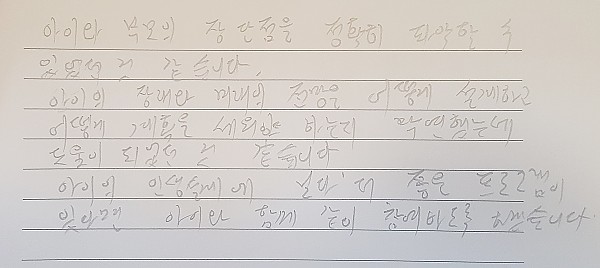 아이와 부모의 장단점을 정확히 파악할 수
있었던 것 같습니다.
아이의 장래와 미래의 희망은 어떻게 설계하고
어떻게 계획을 세워야 하는지 막연했는데
도움이 되었던 것 같습니다
아이의 인생설계에 보다 더 좋은 프로그램이
있다면 아이와 함께 같이 참여하도록 하겠습니다.